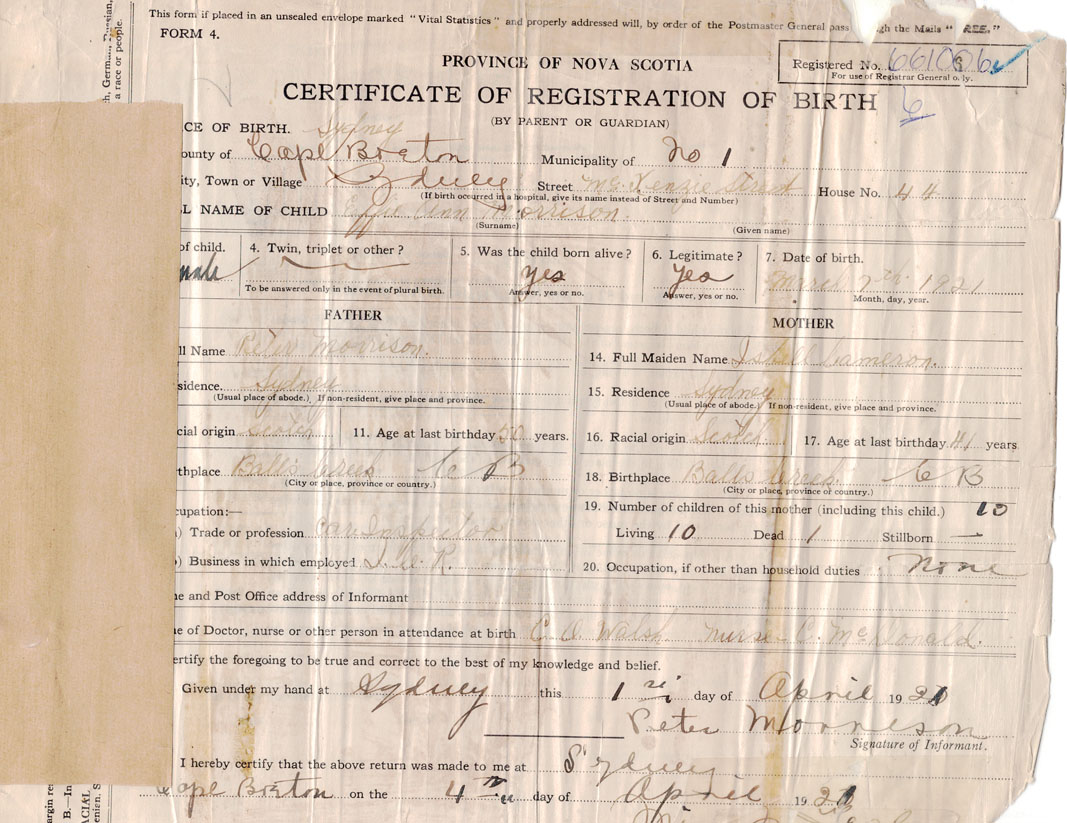 This form if placed in an unsealed envelope marked "Vital Statistics" and properly addressed will, by order of the Postmaster General pass gh the Mails "
FORM 4.
Registered No. 661006
For use of Registrar General o ly.
6
PROVINCE OF NOVA SCOTIA
CERTIFICATE OF REGISTRATION OF BIRTH
(BY PARENT OR GUARDIAN)
CE OF BIRTH. Sydney
ounty of Cape Breton Municipality of No 1
ity, Town or Village Sydney Street McKenzie Street House No. 44
(If birth occurred in a hospital, give its name instead of Street and Number)
L NAME OF CHILD Effie Ann Morrison.
(Surname) (Given name)
of child. 4. Twin, triplet or other? 5. Was the child born alive? 6. Legitimate? 7. Date of birth.
male yes yes March 7th 1921
To be answered only in the event of plural birth. Answer, yes or no. Answer, yes or no. Month, day, year.
FATHER
ll Name Peter Morrison.
sidence. Sydney
(Usual place of abode.) If non-resident, give place and province.
cial origin Scotch 11. Age at last birthday 50 years.
thplace Balls Creek C B
(City or place, province or country.)
cupation:—
) Trade or profession Car Inspector
) Business in which employed
MOTHER
14. Full Maiden Name Isabell Cameron.
15. Residence Sydney
(Usual place of abode.) If non-resident, give place and province.
16. Racial origin Scotch 17. Age at last birthday 41 years
18. Birthplace Balls Creek C B
(City or place, province or country.)
19. Number of children of this mother (including this child.) 10
Living 10 Dead 1 Stillborn —
20. Occupation, if other than household duties None
e and Post Office address of Informant
e of Doctor, nurse or other person in attendance at birth C. A. Walsh nurse C. McDonald.
ertify the foregoing to be true and correct to the best of my knowledge and belief.
Given under my hand at Sydney this 1 day of April 1921
Peter Morrison
Signature of Informant.
I hereby certify that the above return was made to me at Sydney
Cape Breton on the 4 day of April 1921
h, German, Russian,
a race or people.
argin res
B.—In
ACIAL